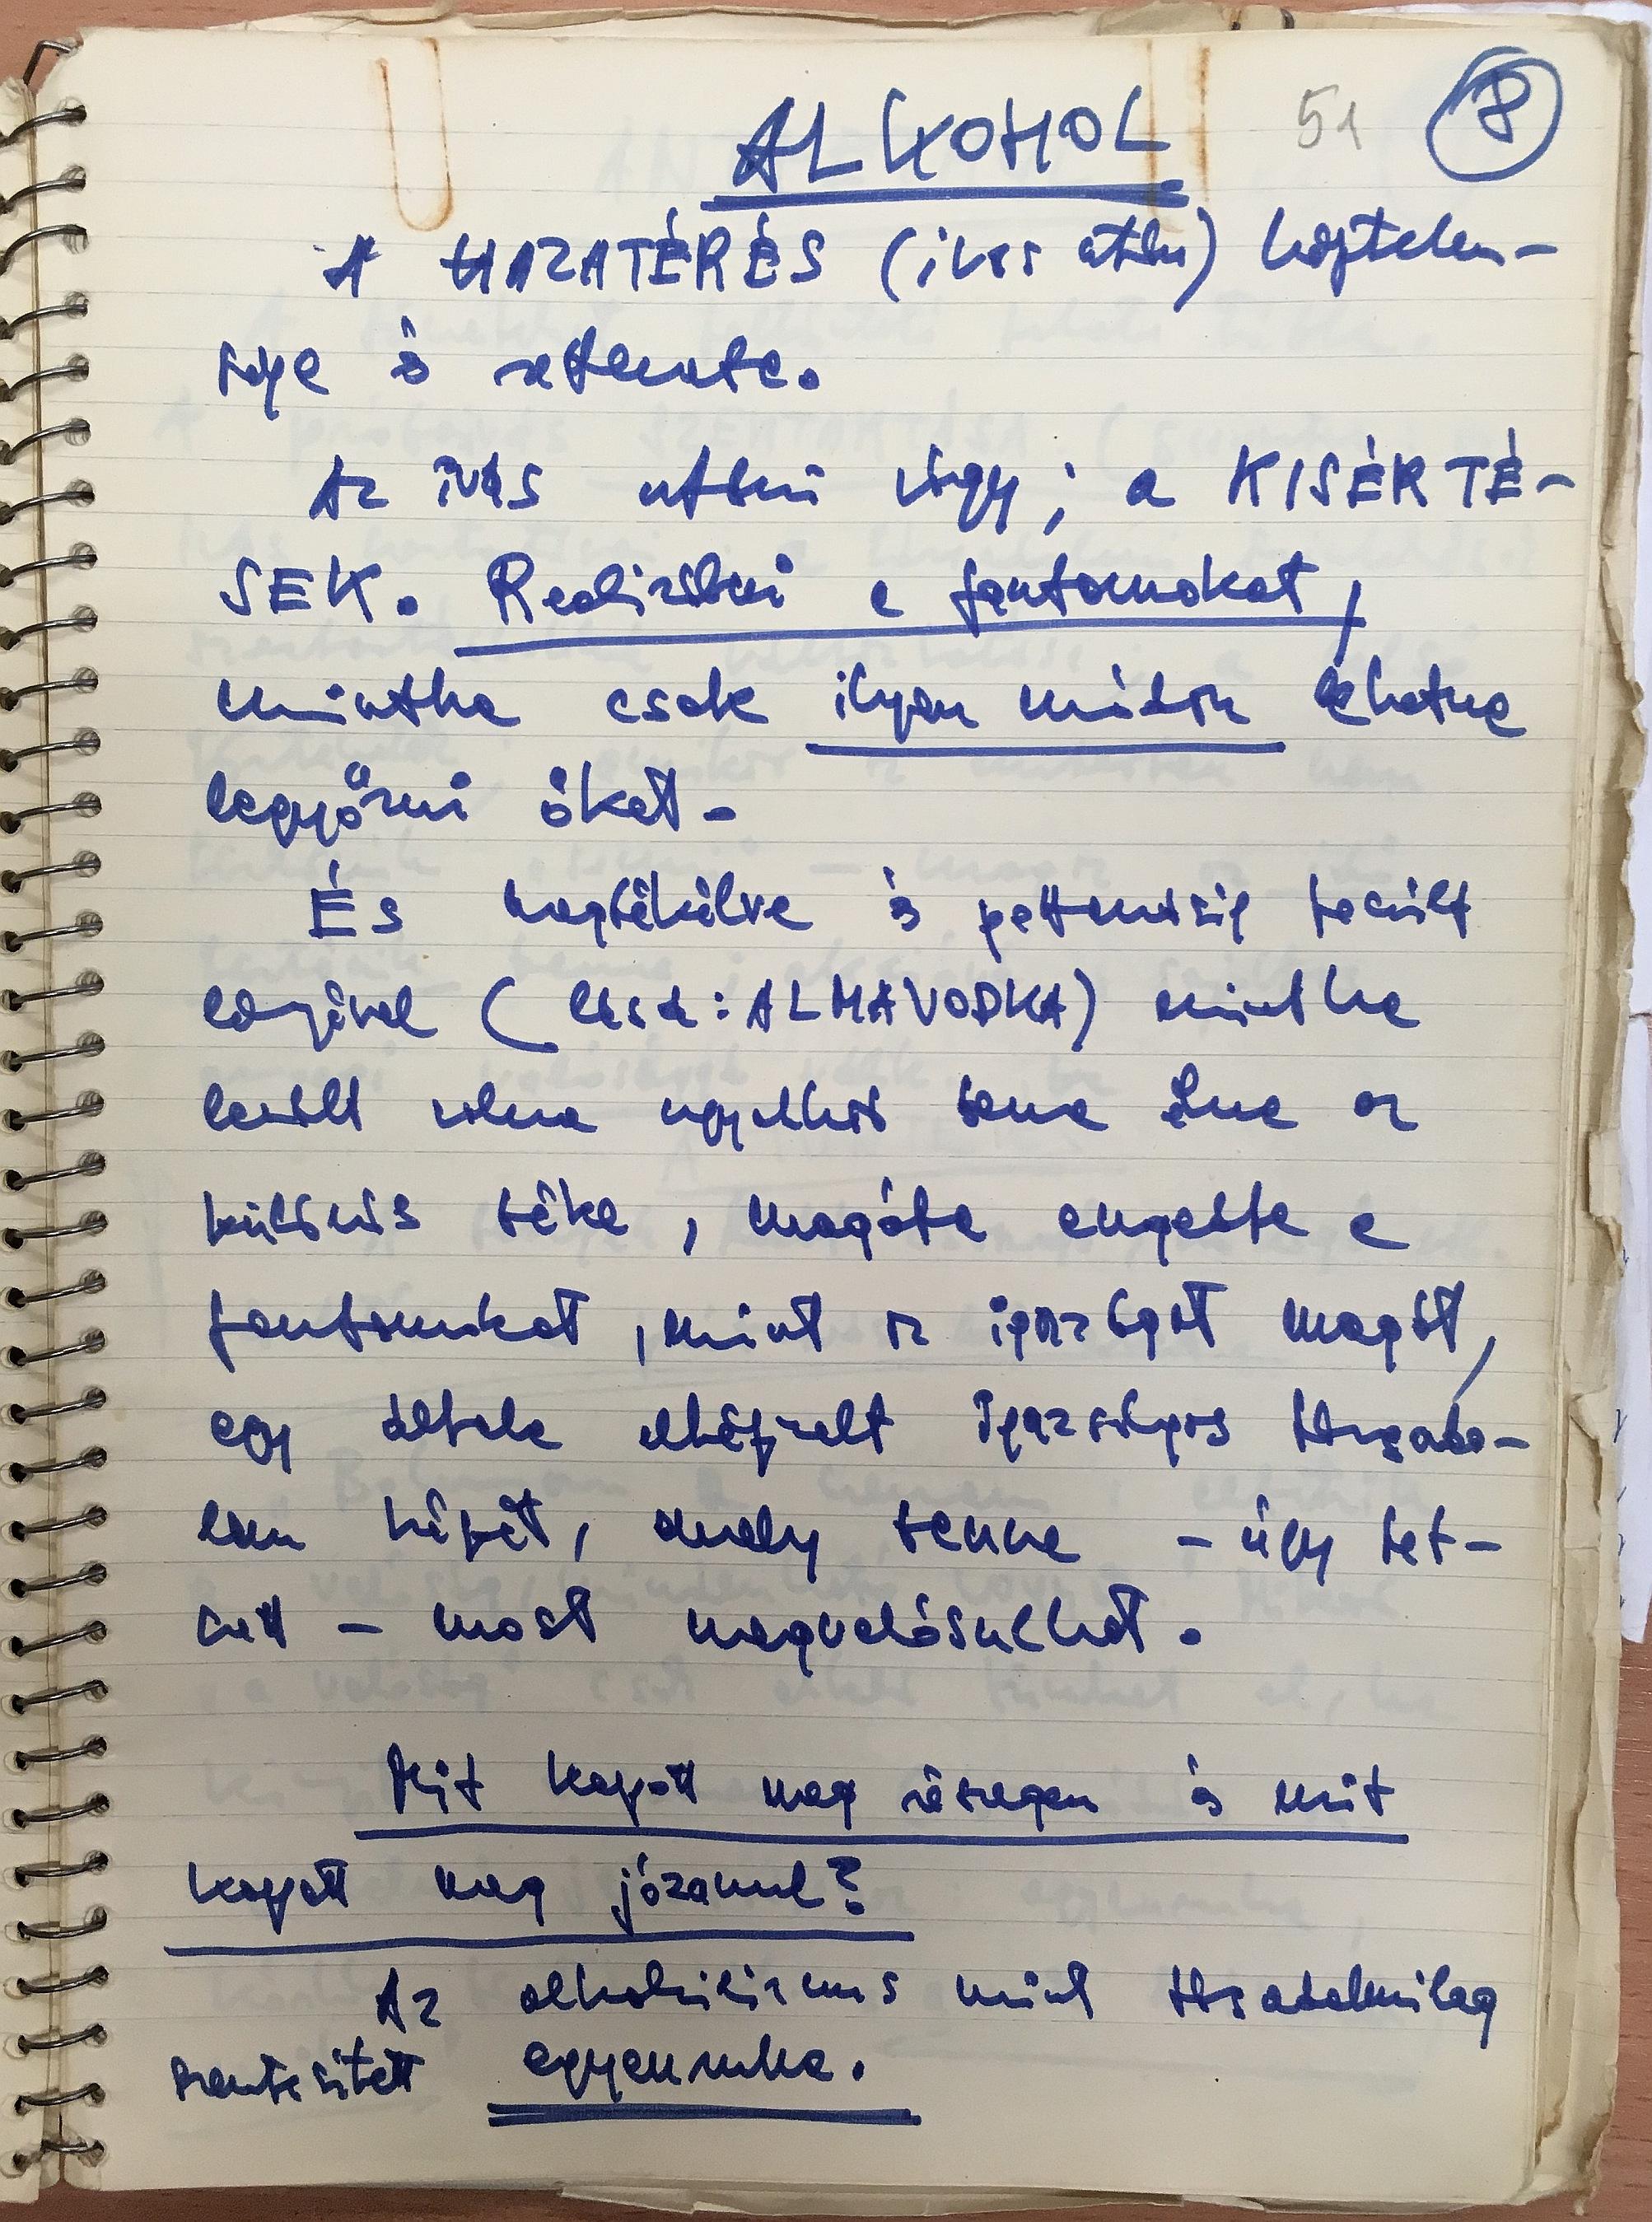 ALKOHOL 51 8
A HAZATÉRÉS (ivás után) képtelen-
sége és rettenete.
Az ivás utáni vágy; a KISÉRTÉ-
SEK. Realizálni a fantomokat,
mintha csak ilyen módon lehetne
legyőzni őket.
És megbékélve és
(lásd: ALMAVODKA) mintha
lenne az
különös béke, magába engedte a
fantomokat, mint az igazságot magát,
egy általa elképzelt igazságos társada-
lom képét, amely benne - úgy tet-
szett - most megvalósulhat.
Mit kapott meg részegen és mit
kapott meg józanul?
Az alkoholizmus mint társadalmilag
szentesített egyenruha.